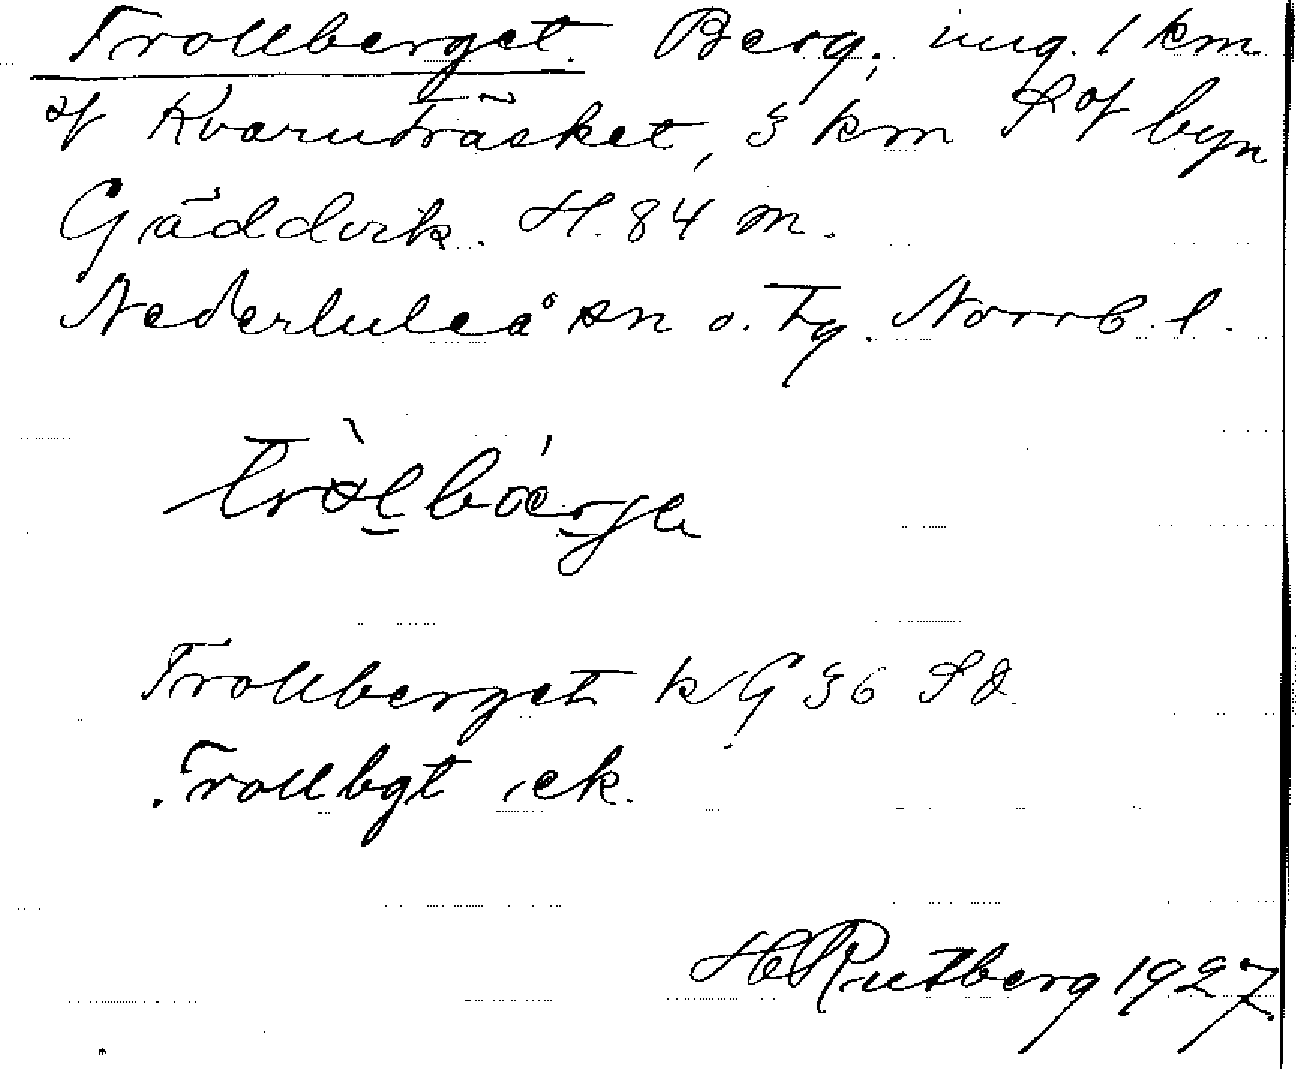 Trollberget. Berg, ung. 1 km
of Kvarnträsket, 3 km S of byn
Gäddvik. H. 84 m.
Nederluleå sn o. Tg. Norrb. l.
Trollberget k G 36 Sd
Trollbgt ek.
H Rutberg 1927